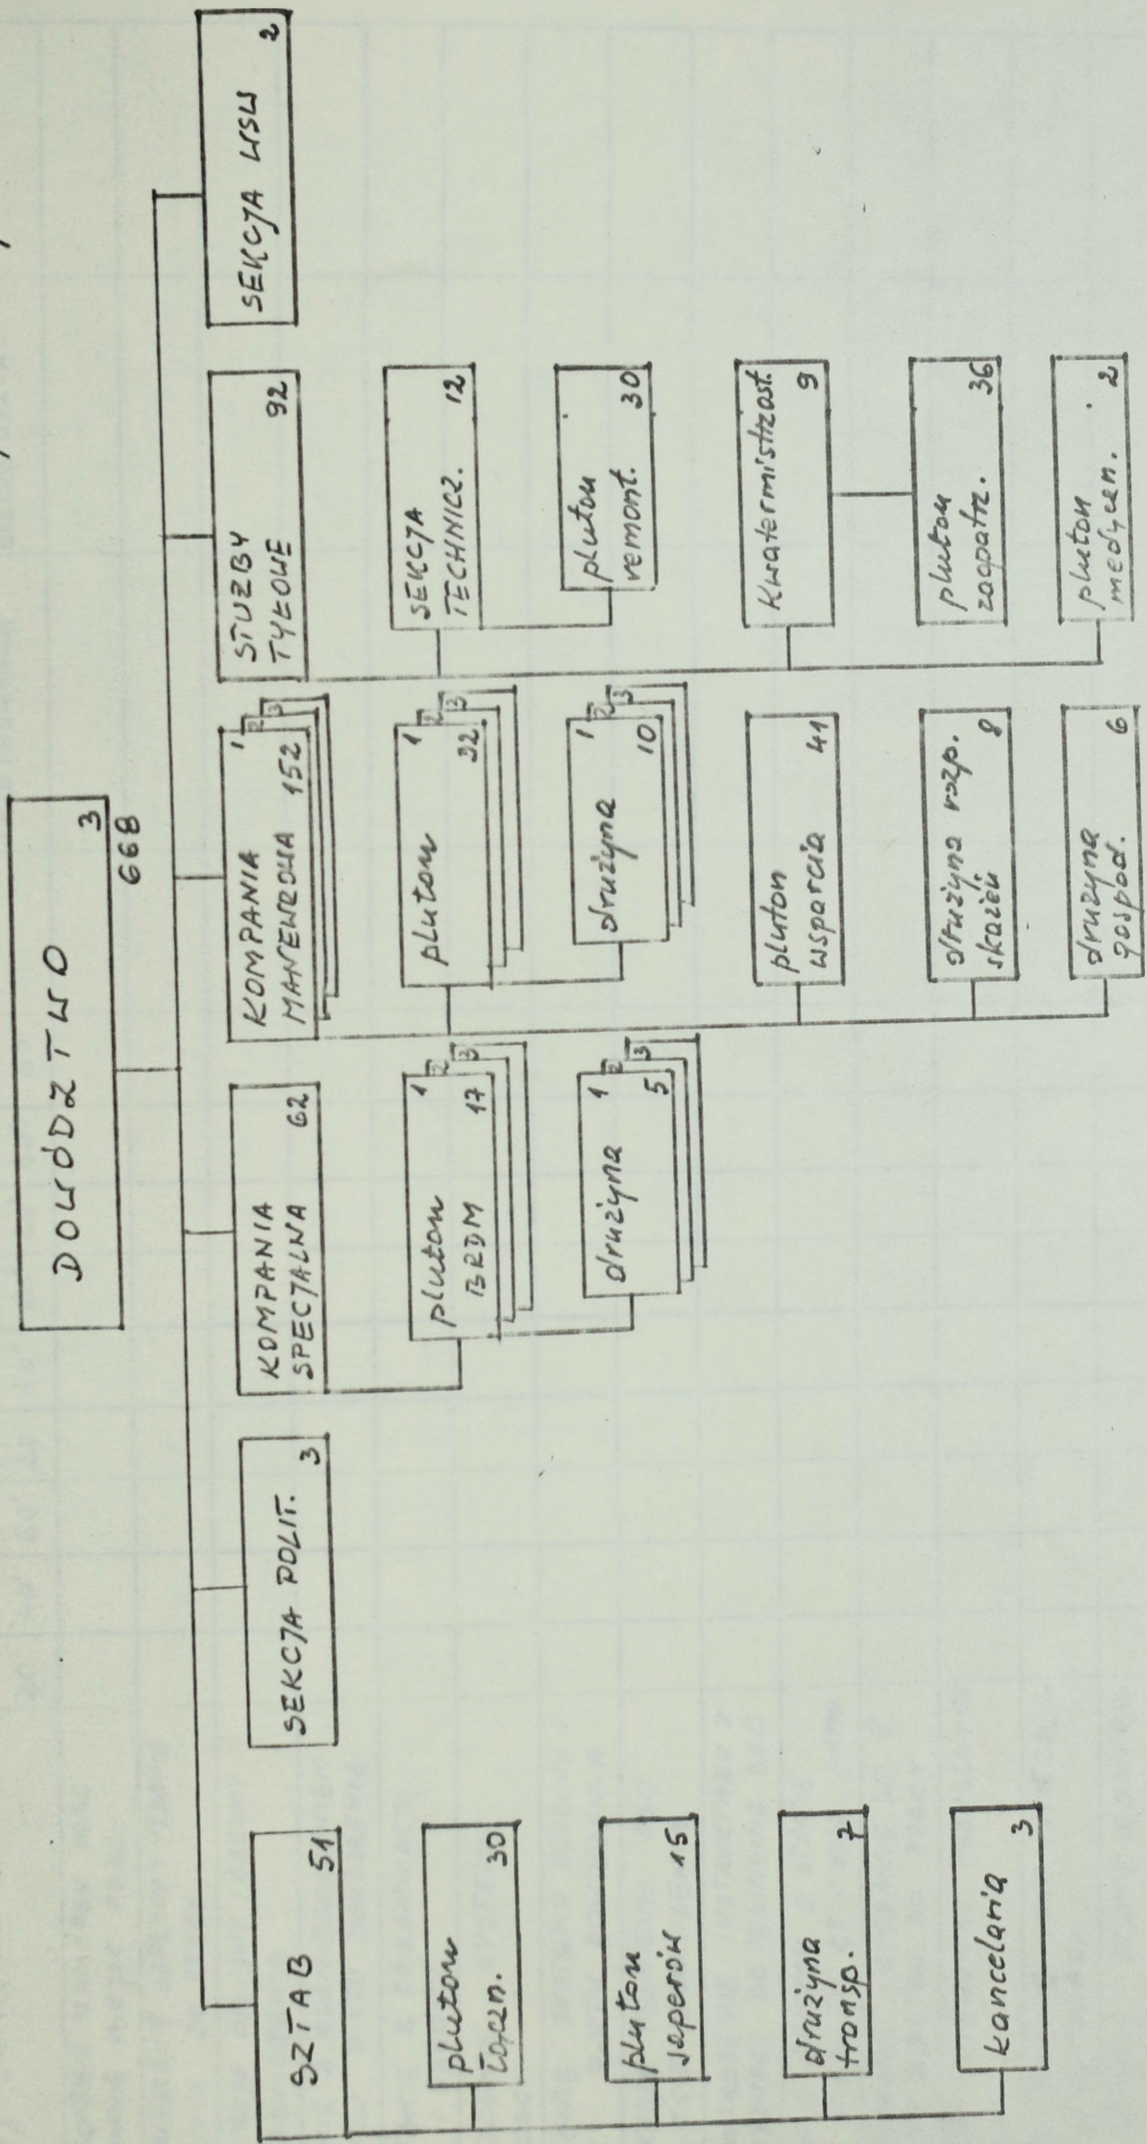 DOWÓDZTWO
3
668
SZTAB
51
pluton
łączn.
30
pluton
saperów 15
drużyna
transp.
7
kancelaria
3
SEKCJA POLIT.
3
KOMPANIA
SPECJALNA
62
pluton
BRDM
17
1
2
3
drużyna
5
1
2
3
KOMPANIA
MANEWROWA 152
1
2
3
pluton
32
1
2
3
drużyna
10
1
2
3
pluton
wsparcia
41
drużyna rozp.
skażeń
8
drużyna
gospod.
6
SŁUŻBY
TYŁOWE
92
SEKCJA
TECHNICZ.
12
pluton
remont.
30
Kwatermistrzost.
9
pluton
zaopatrz.
36
pluton
medyczn.
2
SEKCJA WSW
2